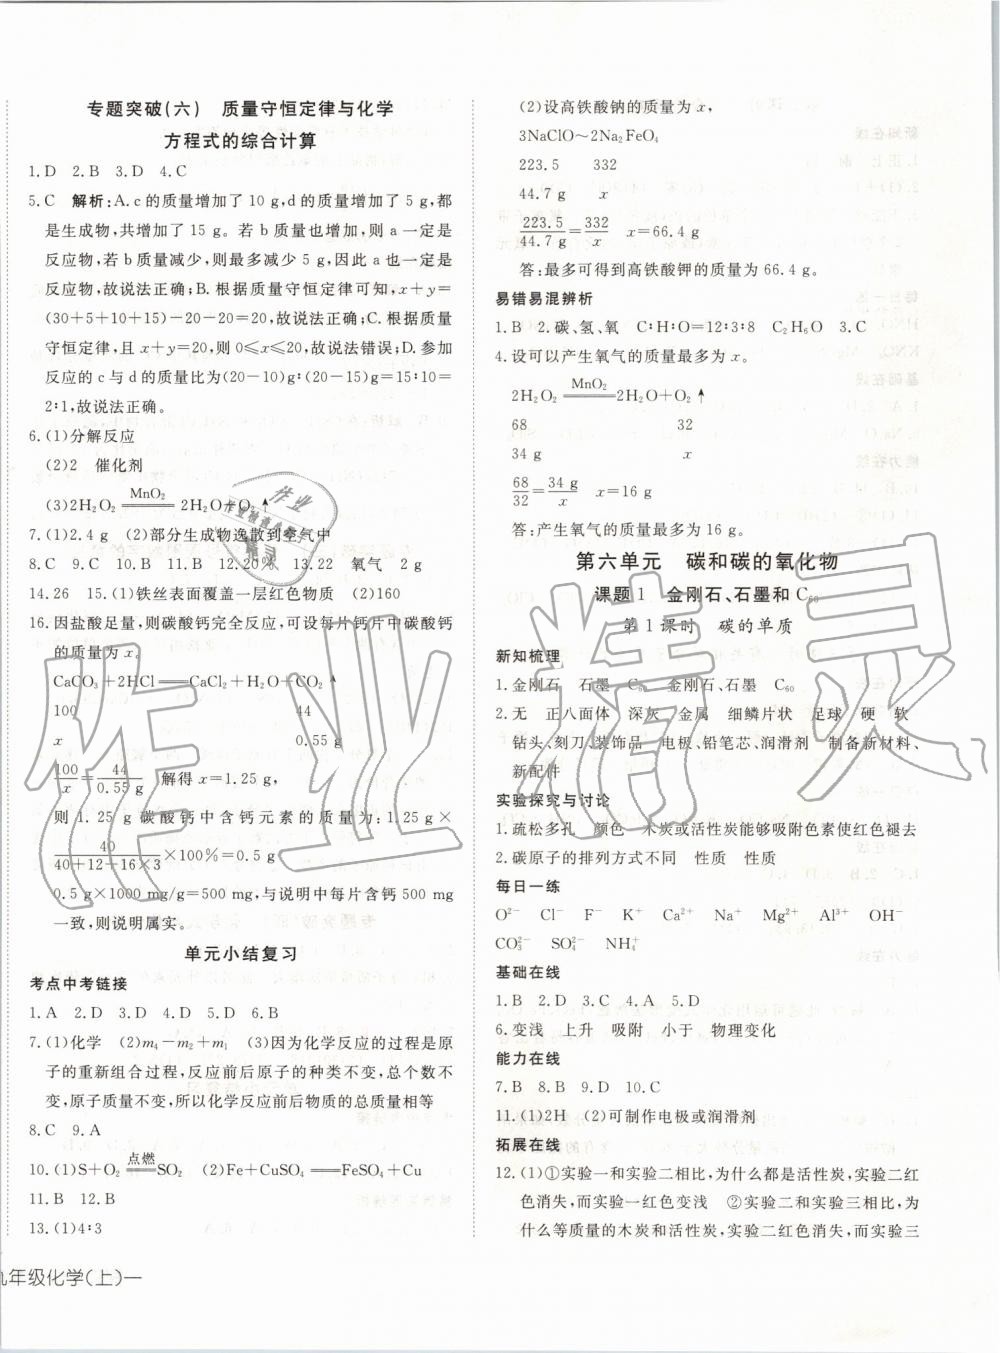 专题突破(六) 质量守恒定律与化学
方程式的综合计算
1.D 2.B 3.D 4.C
5.C 解析:A.c的质量增加了10 g,d的质量增加了5 g,都
是生成物,共增加了15 g。若b质量也增加,则a一定是
反应物,若b质量减少,则最多减少5 g,因此a也一定是
反应物,故说法正确;B.根据质量守恒定律可知,x+y=
(30+5+10+15)-20-20=20,故说法正确;C.根据质量
守恒定律,且x+y=20,则0≤x≤20,故说法错误;D.参加
反应的c与d的质量比为(20-10)g∶(20-15)g=15∶10=
2∶1,故说法正确。
6.(1)分解反应
(2)2 催化剂
(3)2H₂O₂ =MnO₂= 2H₂O+O₂↑
7.(1)2.4 g (2)部分生成物逸散到空气中
8.C 9.C 10.B 11.B 12.20% 13.22 氧气 2 g
14.26 15.(1)铁丝表面覆盖一层红色物质 (2)160
16.因盐酸足量,则碳酸钙完全反应,可设每片钙片中碳酸钙
的质量为x。
CaCO₃+2HCl══CaCl₂+H₂O+CO₂↑
100 44
x 0.55 g
100/x=44/0.55 g 解得x=1.25 g,
则 1.25 g碳酸钙中含钙元素的质量为:1.25 g×
40/(40+12+16×3)×100%=0.5 g
0.5 g×1000 mg/g=500 mg,与说明中每片含钙500 mg
一致,则说明属实。
单元小结复习
考点中考链接
1.A 2.D 3.D 4.D 5.D 6.B
7.(1)化学 (2)m₄-m₂+m₁ (3)因为化学反应的过程是原
子的重新组合过程,反应前后原子的种类不变,总个数不
变,原子质量不变,所以化学反应前后物质的总质量相等
8.C 9.A
10.(1)S+O₂ =点燃= SO₂ (2)Fe+CuSO₄══FeSO₄+Cu
11.B 12.B
13.(1)4∶3
九年级化学(上)一
(2)设高铁酸钠的质量为x,
3NaClO~2Na₂FeO₄
223.5 332
44.7 g x
223.5/44.7 g=332/x x=66.4 g
答:最多可得到高铁酸钾的质量为66.4 g。
易错易混辨析
1.B 2.碳、氢、氧 C∶H∶O=12∶3∶8 C₂H₆O 3.C
4.设可以产生氧气的质量最多为x。
2H₂O₂ =MnO₂= 2H₂O+O₂↑
68 32
34 g x
68/32=34 g/x x=16 g
答:产生氧气的质量最多为16 g。
第六单元 碳和碳的氧化物
课题1 金刚石、石墨和C₆₀
第1课时 碳的单质
新知梳理
1.金刚石 石墨 C₆₀ 金刚石、石墨 C₆₀
2.无 正八面体 深灰 金属 细鳞片状 足球 硬 软
钻头、刻刀、装饰品 电极、铅笔芯、润滑剂 制备新材料、
新配件
实验探究与讨论
1.疏松多孔 颜色 木炭或活性炭能够吸附色素使红色褪去
2.碳原子的排列方式不同 性质 性质
每日一练
O²⁻ Cl⁻ F⁻ K⁺ Ca²⁺ Na⁺ Mg²⁺ Al³⁺ OH⁻
CO₃²⁻ SO₄²⁻ NH₄⁺
基础在线
1.B 2.D 3.C 4.A 5.D
6.变浅 上升 吸附 小于 物理变化
能力在线
7.B 8.B 9.D 10.C
11.(1)2H (2)可制作电极或润滑剂
拓展在线
12.(1)①实验一和实验二相比,为什么都是活性炭,实验二红
色消失,而实验一红色变浅 ②实验二和实验三相比,为
什么等质量的木炭和活性炭,实验二红色消失,而实验三
作业精灵